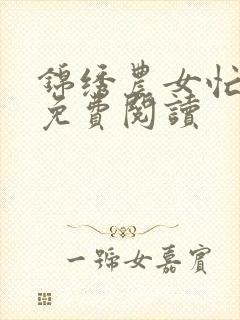 錦绣農女忙
免費閱讀
一號女嘉賓